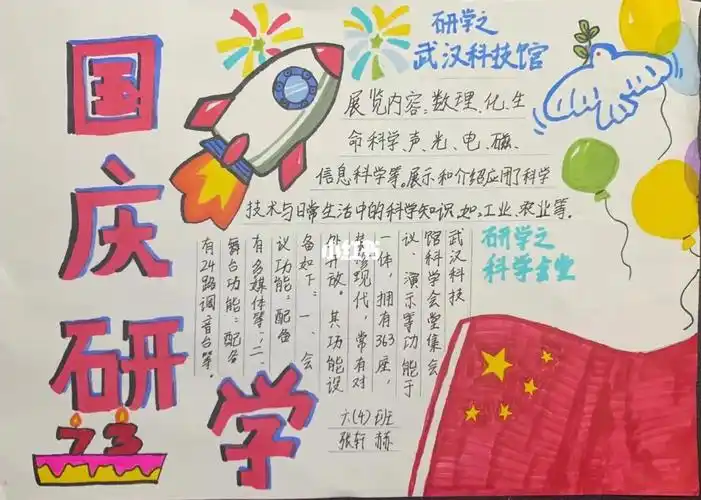 国庆研学
研学之
武汉科技馆
展览内容:数理、化、生
命科学、声、光、电、磁、
信息科学等。展示和介绍应用了科学
技术与日常生活中的科学知识,如:工业、农业等.
研学之
科学会堂
武汉科技
馆科学会堂集会
议、演示等功能于
一体，拥有363座，
装修现代，常有对
外开放。其功能设
备如下：一、会
议功能：配备
有多媒体等；二、
舞台功能：配备
有24路调音台等。
六(4)班
张轩赫
73
小红书